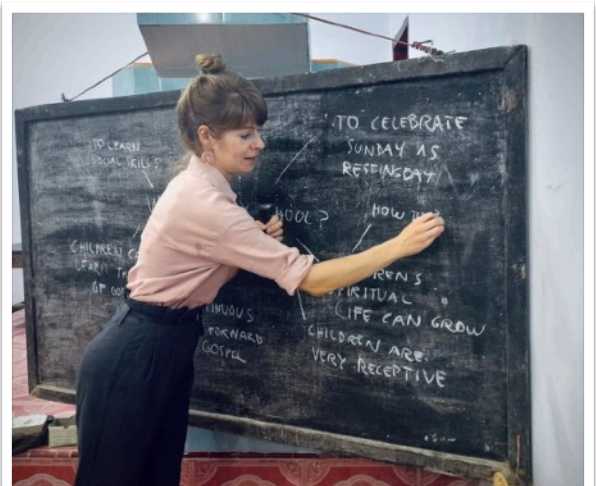 TO LEARN
SOCIAL SKILLS
TO CELEBRATE
SUNDAY AS
RESTINGDAY
HOOL?
HOW
CHILDREN
LEARN
OF
RENS
SPIRITUAL
LIFE CAN GROW
TINUOUS
FORWARD
GOSPEL
CHILDREN ARE
VERY RECEPTIVE